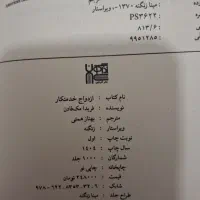 مینا زنگنه - ۱۳۷۰، ویراستار
PS۳۶۲۲
۸۱۳/۶
۹۹۵۱۲۸۵
نام کتاب: ازدواج خدمتکار
نویسنده: فریدا مک‌فادن
مترجم: بهناز حسنی
ویراستار: زنگنه
نوبت چاپ: اول
سال چاپ: ۱۴۰۴
شمارگان: ۱۰۰۰ جلد
چاپخانه: چاپی نو
قیمت: ۲۴۸۰۰۰ تومان
شابک:
طراح جلد: مینا زنگنه